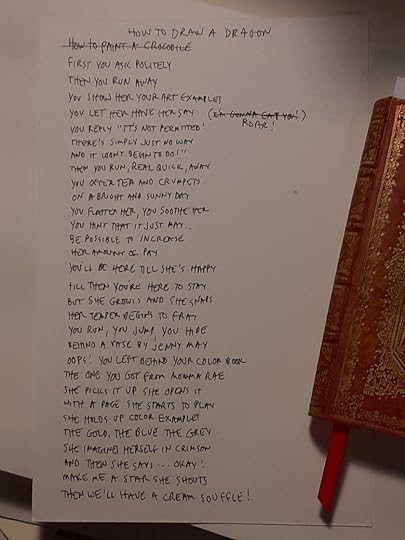 HOW TO DRAW A DRAGON
HOW TO PAINT A CROCODILE
FIRST YOU ASK POLITELY
THEN YOU RUN AWAY
YOU SHOW HER YOUR ART EXAMPLES
YOU LET HER HAVE HER SAY (I'M GONNA EAT YOU!)
ROAR!
YOU REPLY "IT'S NOT PERMITTED!
THERE'S SIMPLY JUST NO WAY
AND IT WON'T BEGIN TO DO!"
THEN YOU RUN, REAL QUICK, AWAY
YOU OFFER TEA AND CRUMPETS
ON A BRIGHT AND SUNNY DAY
YOU FLATTER HER, YOU SOOTHE HER
YOU HINT THAT IT JUST MAY...
BE POSSIBLE TO INCREASE
HER AMOUNT OF PAY
YOU'LL BE HERE TILL SHE'S HAPPY
TILL THEN YOU'RE HERE TO STAY
BUT SHE GROWLS AND SHE SNAPS
HER TEMPER BEGINS TO FRAY
YOU RUN, YOU JUMP, YOU HIDE
BEHIND A VASE BY JENNY MAY
OOPS! YOU LEFT BEHIND YOUR COLOR BOOK
THE ONE YOU GOT FROM MOMMA RAE
SHE PICKS IT UP SHE OPENS IT
WITH A PAGE SHE STARTS TO PLAY
SHE HOLDS UP COLOR EXAMPLES
THE GOLD, THE BLUE THE GREY
SHE IMAGINES HERSELF IN CRIMSON
AND THEN SHE SAYS... OKAY!
MAKE ME A STAR SHE SHOUTS
THEN WE'LL HAVE A CREAM SOUFFLE!